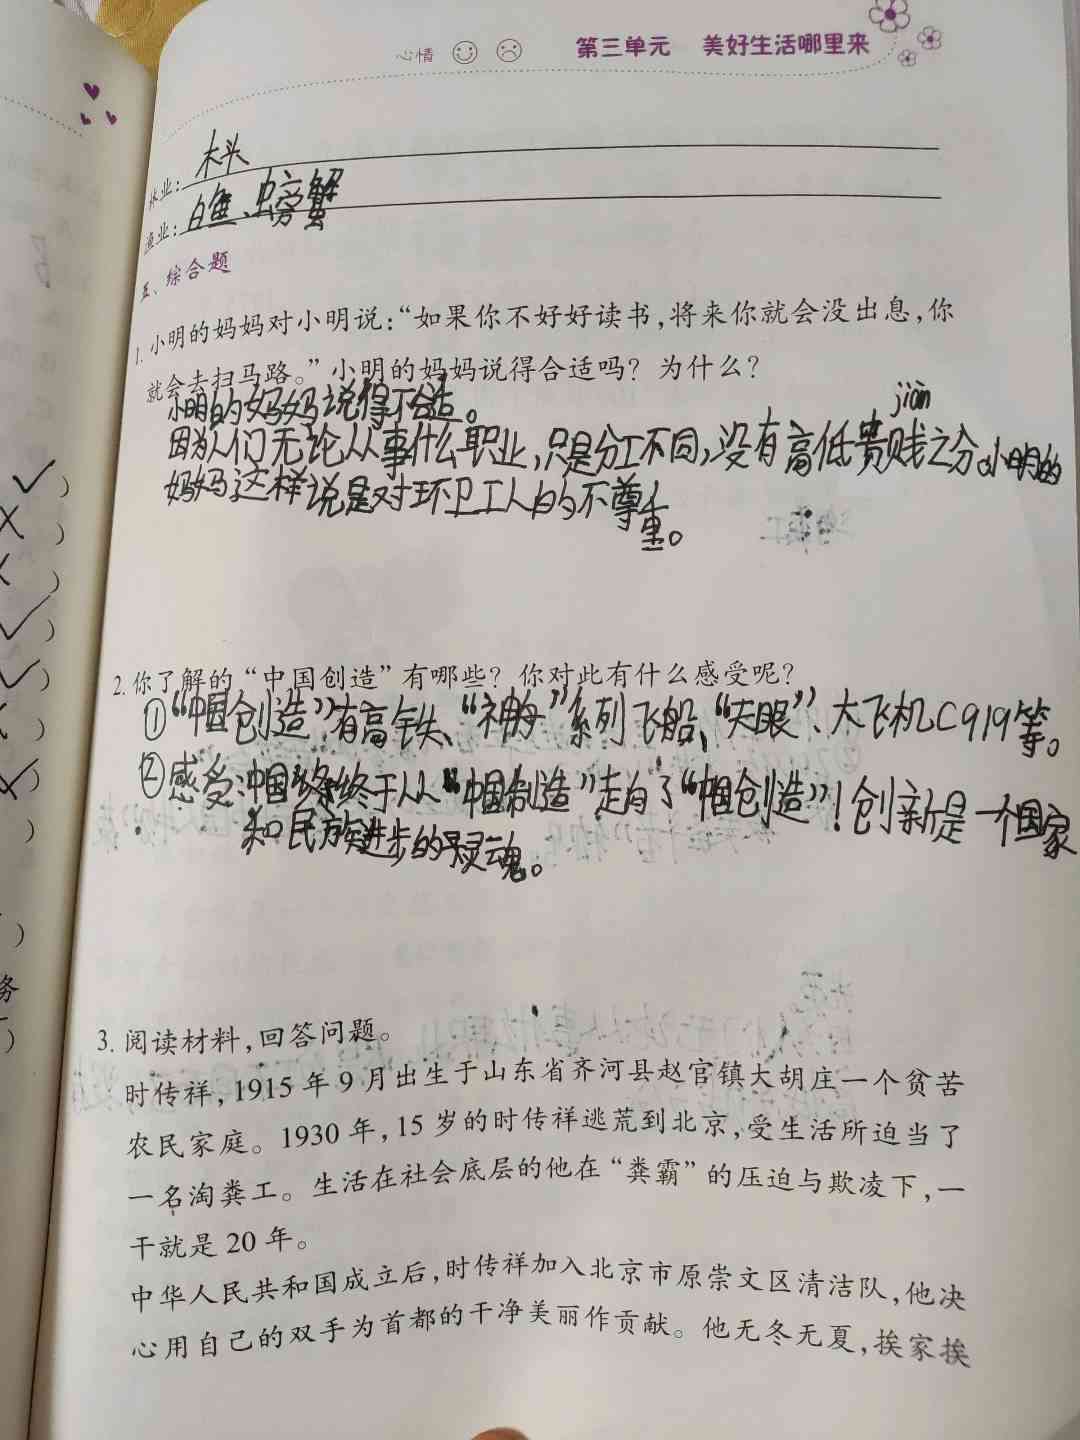 心情 第三单元 美好生活哪里来
林业：木头
渔业：鱼、螃蟹
五、综合题
1. 小明的妈妈对小明说：“如果你不好好读书，将来你就会没出息，你
就会去扫马路。”小明的妈妈说得合适吗？为什么？
小明的妈妈说得不合适。
jiàn
因为人们无论从事什么职业，只是分工不同，没有高低贵贱之分。小明的
妈妈这样说是对环卫工人的不尊
重。
2. 你了解的“中国创造”有哪些？你对此有什么感受呢？
①“中国创造”有高铁、“神舟”系列飞船、“天眼”、大飞机C919等。
②感受：中国终于从“中国制造”走向了“中国创造”！创新是一个国家
和民族进步的灵魂。
3. 阅读材料，回答问题。
时传祥，1915年9月出生于山东省齐河县赵官镇大胡庄一个贫苦
农民家庭。1930年，15岁的时传祥逃荒到北京，受生活所迫当了
一名淘粪工。生活在社会底层的他在“粪霸”的压迫与欺凌下，一
干就是20年。
中华人民共和国成立后，时传祥加入北京市原崇文区清洁队，他决
心用自己的双手为首都的干净美丽作贡献。他无冬无夏，挨家挨
务